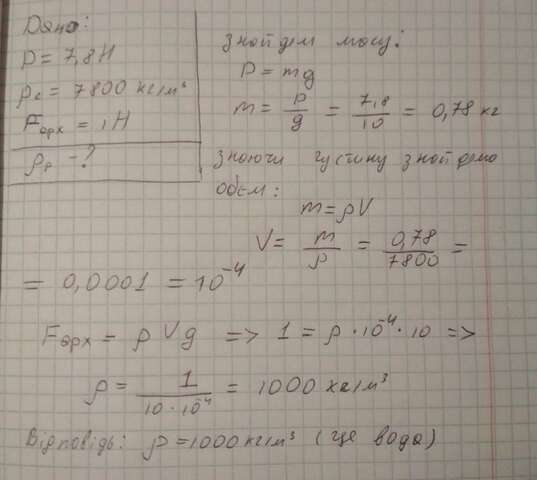 Дано:
P = 7,8 Н
ρс = 7800 кг/м³
Fарх = 1Н
ρр - ?
Знайдем масу:
P = mg
m = P/g = 7,8/10 = 0,78 кг
Знаючи густину знайдемо
обєм:
m = ρV
V = m/ρ = 0,78/7800 =
= 0,0001 = 10⁻⁴
Fарх = ρVg => 1 = ρ · 10⁻⁴ · 10 =>
ρ = 1/(10 · 10⁻⁴) = 1000 кг/м³
Відповідь: ρ = 1000 кг/м³ (це вода)